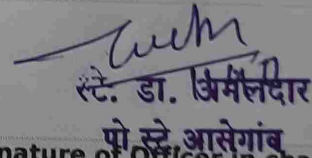 स्टे. डा. अंमलदार
पो स्टे आसेगांव
nature of Officer in cha